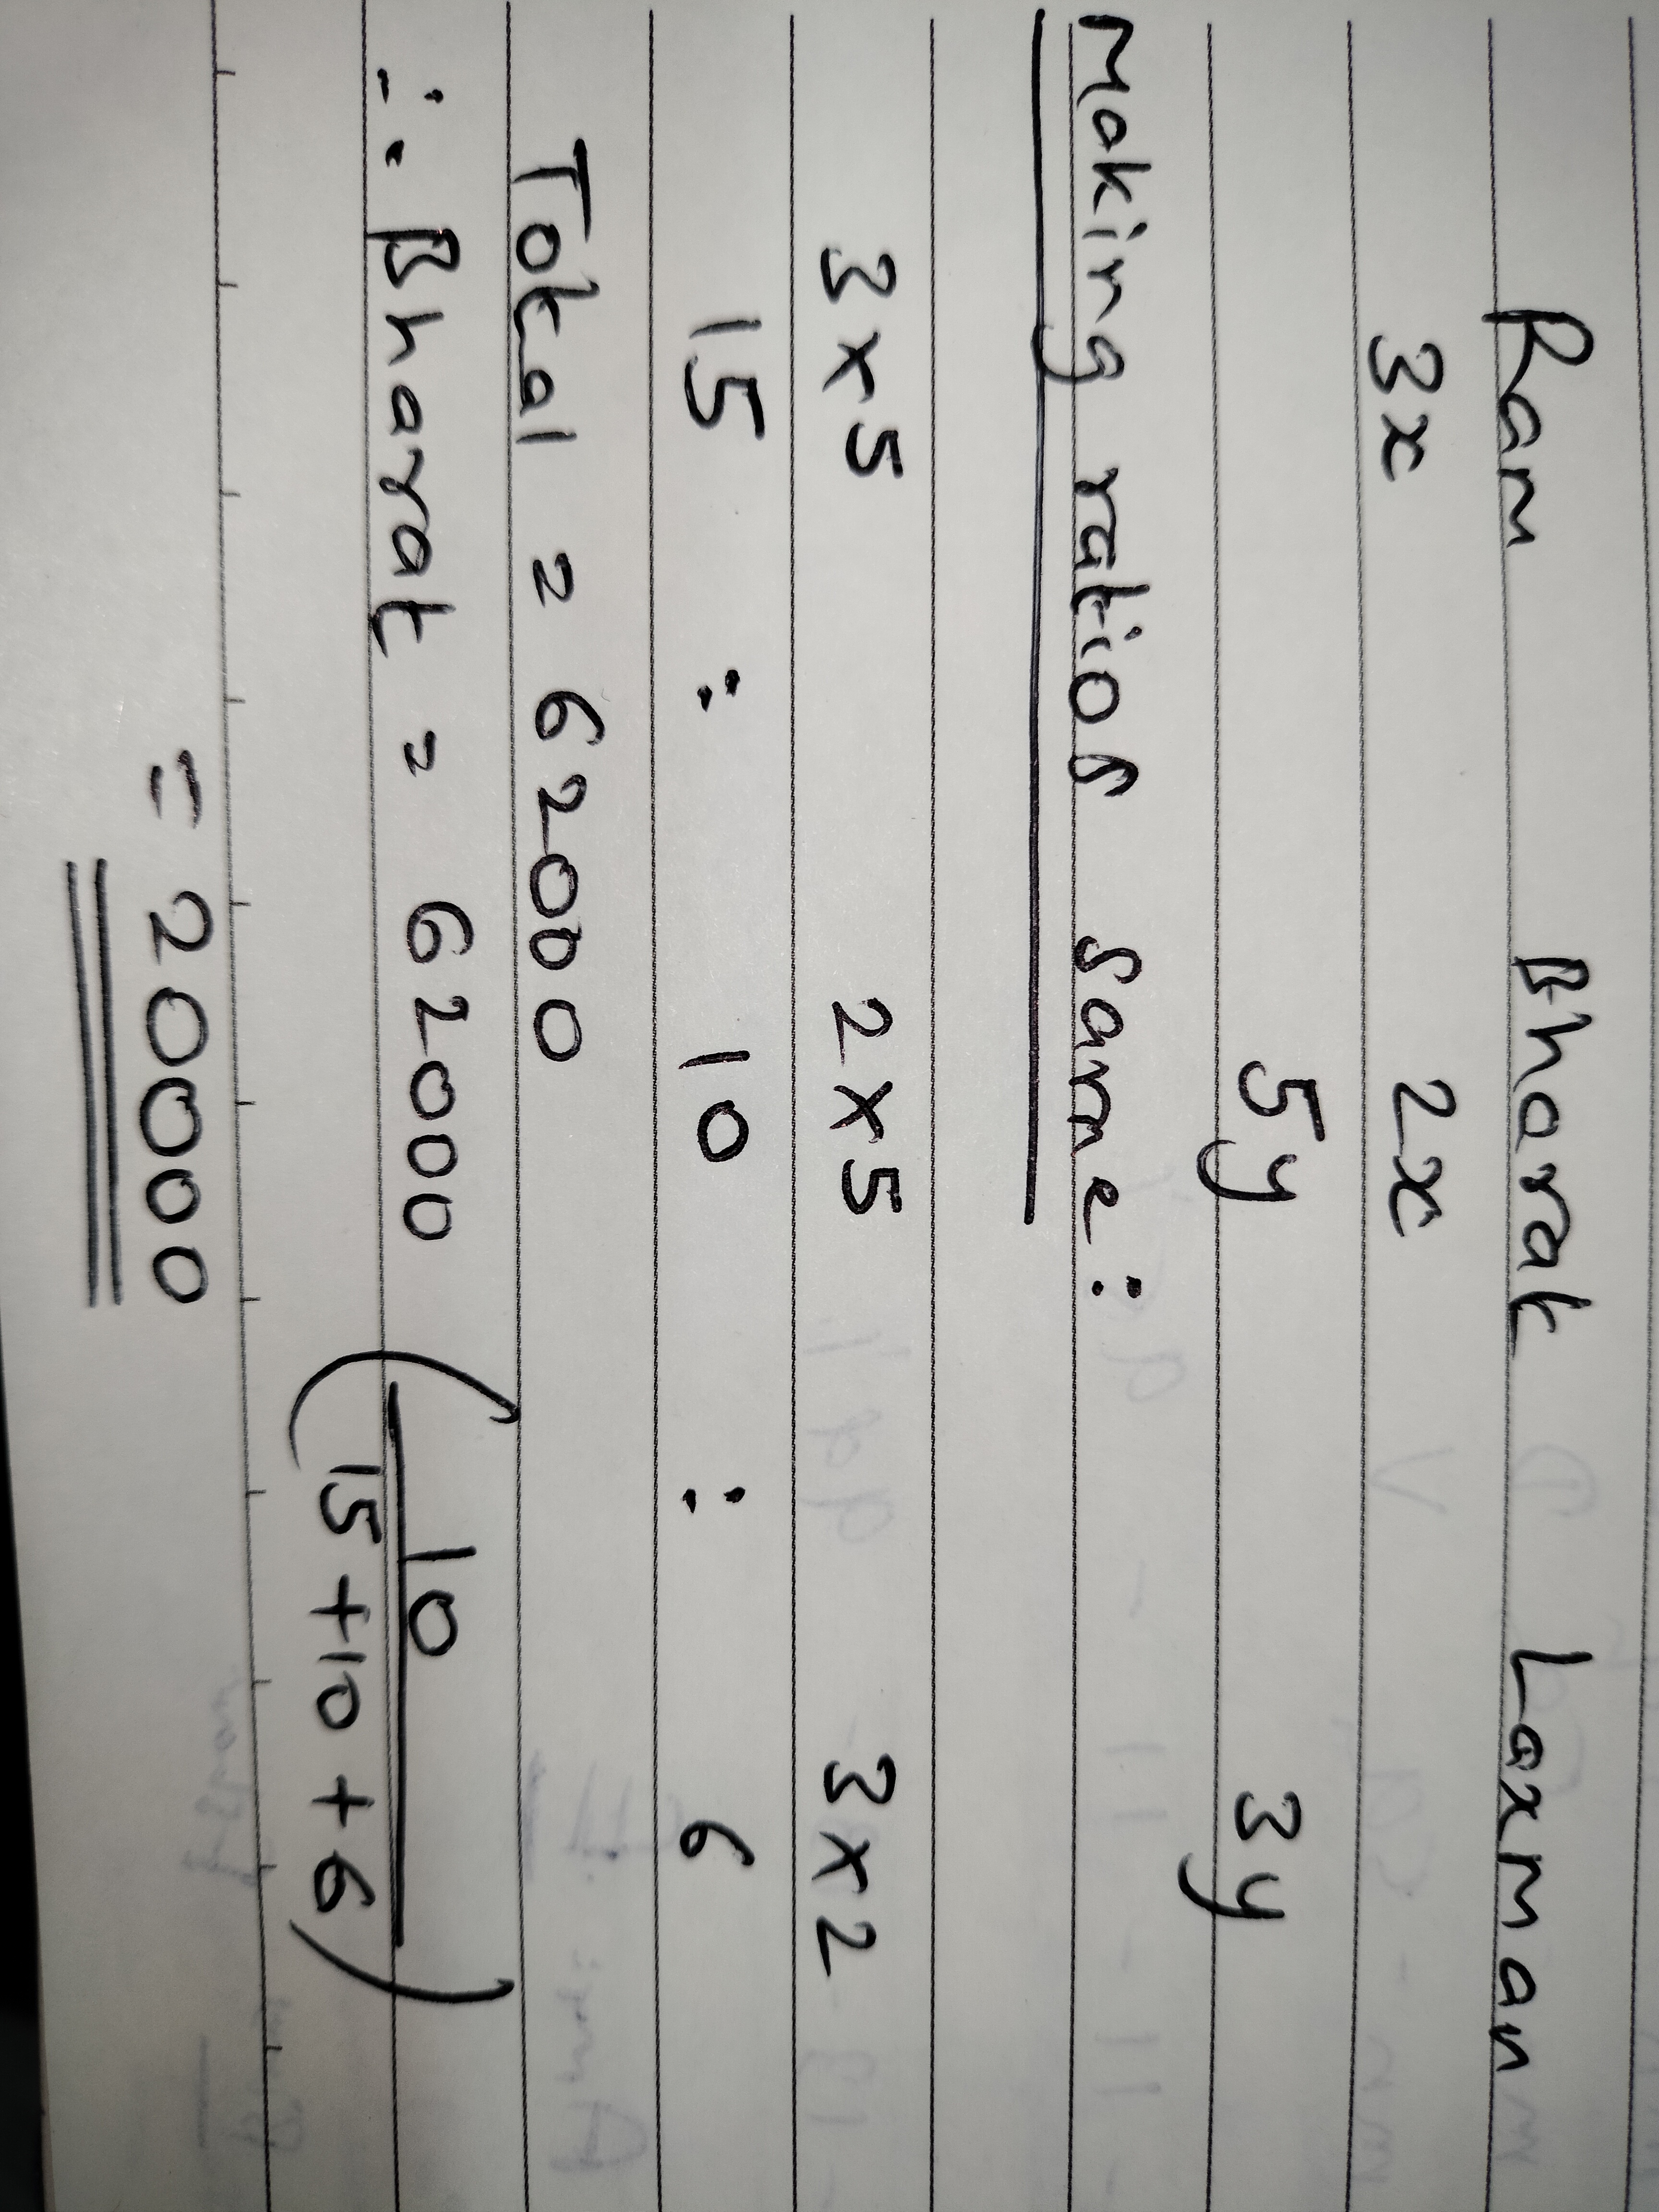 Ram Bharat Laxman
3x 2x
5y 3y
Making ratios same:
3x5 2x5 3x2
15 : 10 : 6
Total = 62000
∴ Bharat = 62000 (10/15+10+6)
= 20000